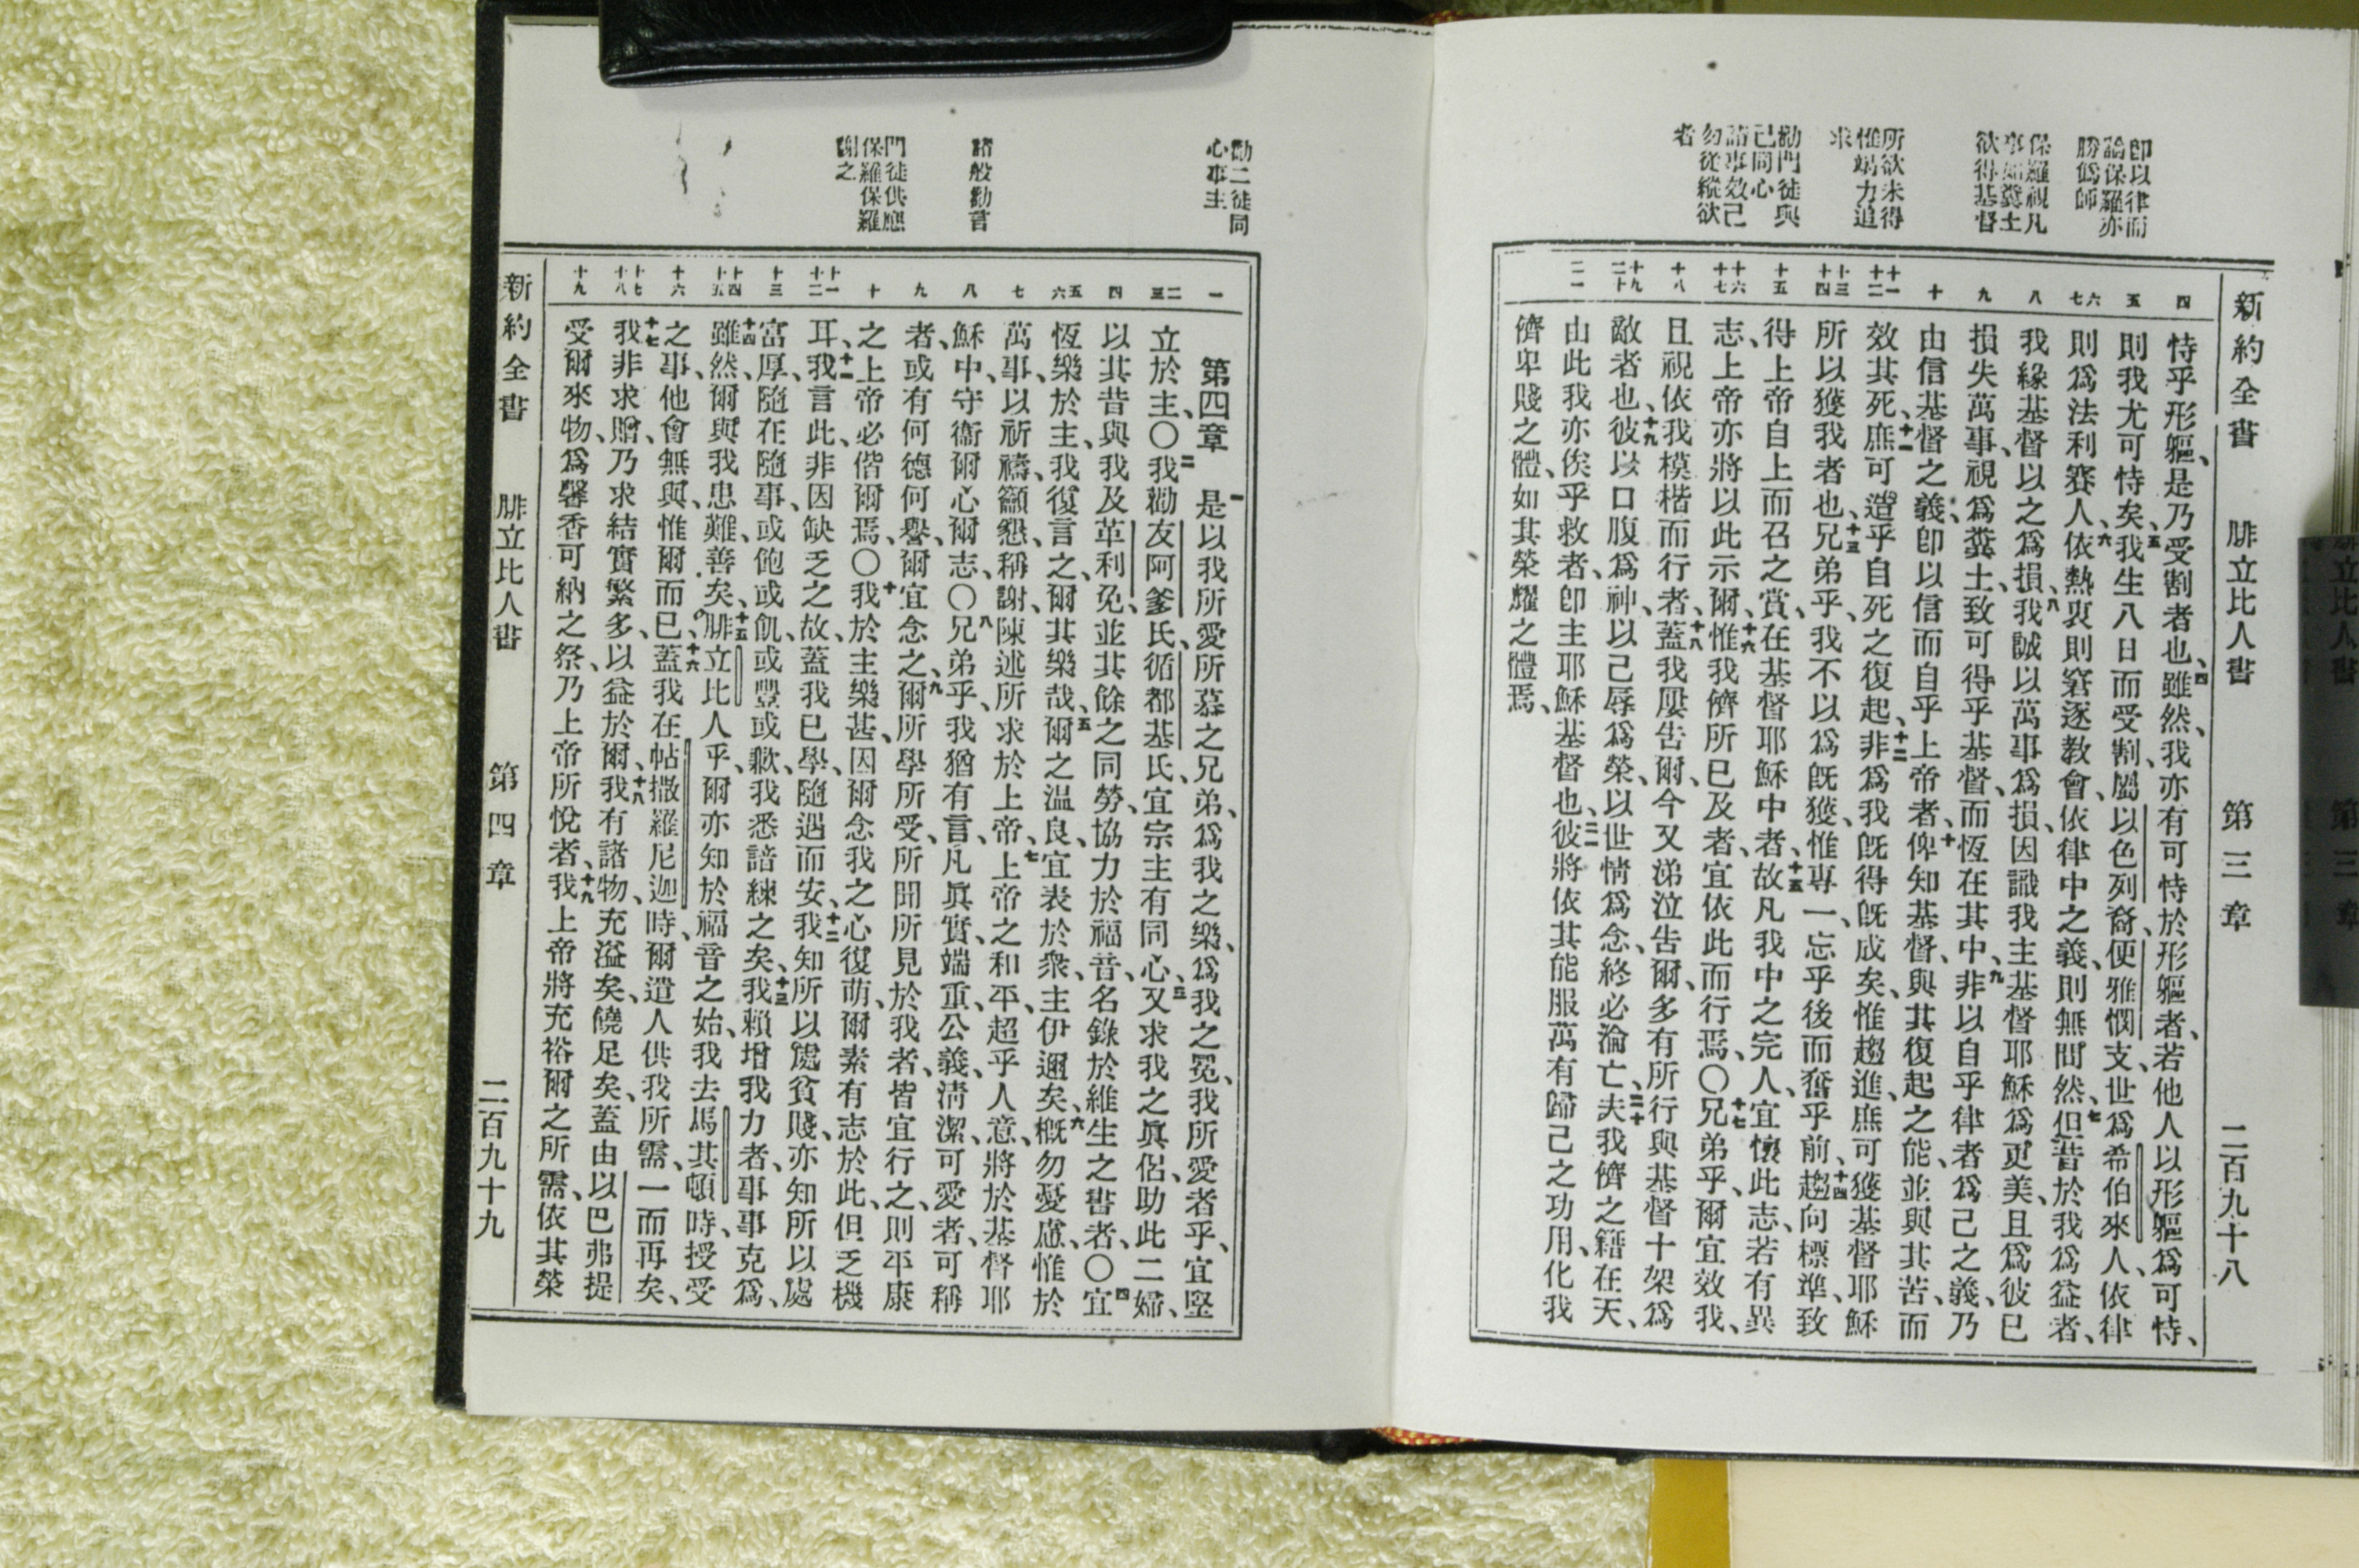 新約全書 腓立比人書 第三章 二百九十八
即以律而
論保羅亦
勝僞師
保羅視凡
事如糞土
欲得基督
所欲未得
惟竭力追
求
勸門徒與
己同心
諸事效己
勿從縱欲
者
四
五
六
七
八
九
十
十一
十二
十三
十四
十五
十六
十七
十八
十九
二十
二一
恃乎形軀、是乃受割者也、四雖然、我亦有可恃於形軀者、若他人以形軀爲可恃、
則我尤可恃矣、五我生八日而受割、屬以色列裔、便雅憫支、世爲希伯來人、依律
則爲法利賽人、六依熱衷則窘逐教會、依律中之義、則無間然、七但昔於我爲益者、
我緣基督以之爲損、八我誠以萬事爲損、因識我主基督耶穌爲更美、且爲彼已
損失萬事、視爲糞土、致可得乎基督、而恆在其中、九非以自乎律者、爲己之義、乃
由信基督之義、卽以信而自乎上帝者、十俾知基督、與其復起之能、並與其苦、而
效其死、十一庶可造乎自死之復起、十二非爲我旣得旣成矣、惟趨進、庶可獲基督耶穌
所以獲我者也、十三兄弟乎、我不以爲旣獲、惟專一、忘乎後而奮乎前、十四趨向標準、致
得上帝自上而召之賞、在基督耶穌中者、十五故凡我中之完人、宜懷此志、若有異
志、上帝亦將以此示爾、十六惟我儕所已及者、宜依此而行焉、〇十七兄弟乎、爾宜效我、
且視依我模楷而行者、十八蓋我屢告爾、今又涕泣告爾、多有所行與基督十架爲
敵者也、十九彼以口腹爲神、以己辱爲榮、以世情爲念、終必淪亡、二十夫我儕之籍在天、
由此我亦俟乎救者、卽主耶穌基督也、二一彼將依其能服萬有歸己之功用、化我
儕卑賤之體、如其榮耀之體焉、
勸二徒同
心事主
諸般勸言
門徒供應
保羅保羅
謝之
一
二
三
四
五
六
七
八
九
十
十一
十二
十三
十四
十五
十六
十七
十八
十九
第四章 一是以我所愛所慕之兄弟、爲我之樂、爲我之冕、我所愛者乎、宜堅
立於主、〇二我勸友阿爹氏、循都基氏、宜宗主有同心、三又求我之眞侶、助此二婦、
以其昔與我及革利免、並其餘之同勞、協力於福音、名錄於維生之書者、〇四宜
恆樂於主、我復言之、爾其樂哉、五爾之温良、宜表於衆、主伊邇矣、六概勿憂慮、惟於
萬事、以祈禱、籲懇、稱謝、陳述所求於上帝、七上帝之和平、超乎人意、將於基督耶
穌中、守衞爾心爾志、〇八兄弟乎、我猶有言、凡眞實、端重、公義、淸潔、可愛者、可稱
者、或有何德何譽、爾宜念之、九爾所學所受、所聞所見於我者、皆宜行之、則平康
之上帝必偕爾焉、〇十我於主樂甚、因爾念我之心復萌、爾素有志於此、但乏機
耳、十一我言此、非因缺乏之故、蓋我已學隨遇而安、十二我知所以處貧賤、亦知所以處
富厚、隨在隨事、或飽或飢、或豐或歉、我悉諳練之矣、十三我賴增我力者、事事克爲、
十四雖然、爾與我患難、善矣、十五腓立比人乎、爾亦知於福音之始、我去馬其頓時、授受
之事、他會無與、惟爾而已、十六蓋我在帖撒羅尼迦時、爾遣人供我所需、一而再矣、
十七我非求贈、乃求結實繁多、以益於爾、十八我有諸物、充溢矣、饒足矣、蓋由以巴弗提
受爾來物、爲馨香可納之祭、乃上帝所悅者、十九我上帝將充裕爾之所需、依其榮
新約全書 腓立比人書 第四章 二百九十九